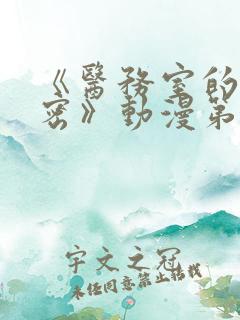 《醫務室的
密》動漫第
宇文之冠
未经同意禁止转载